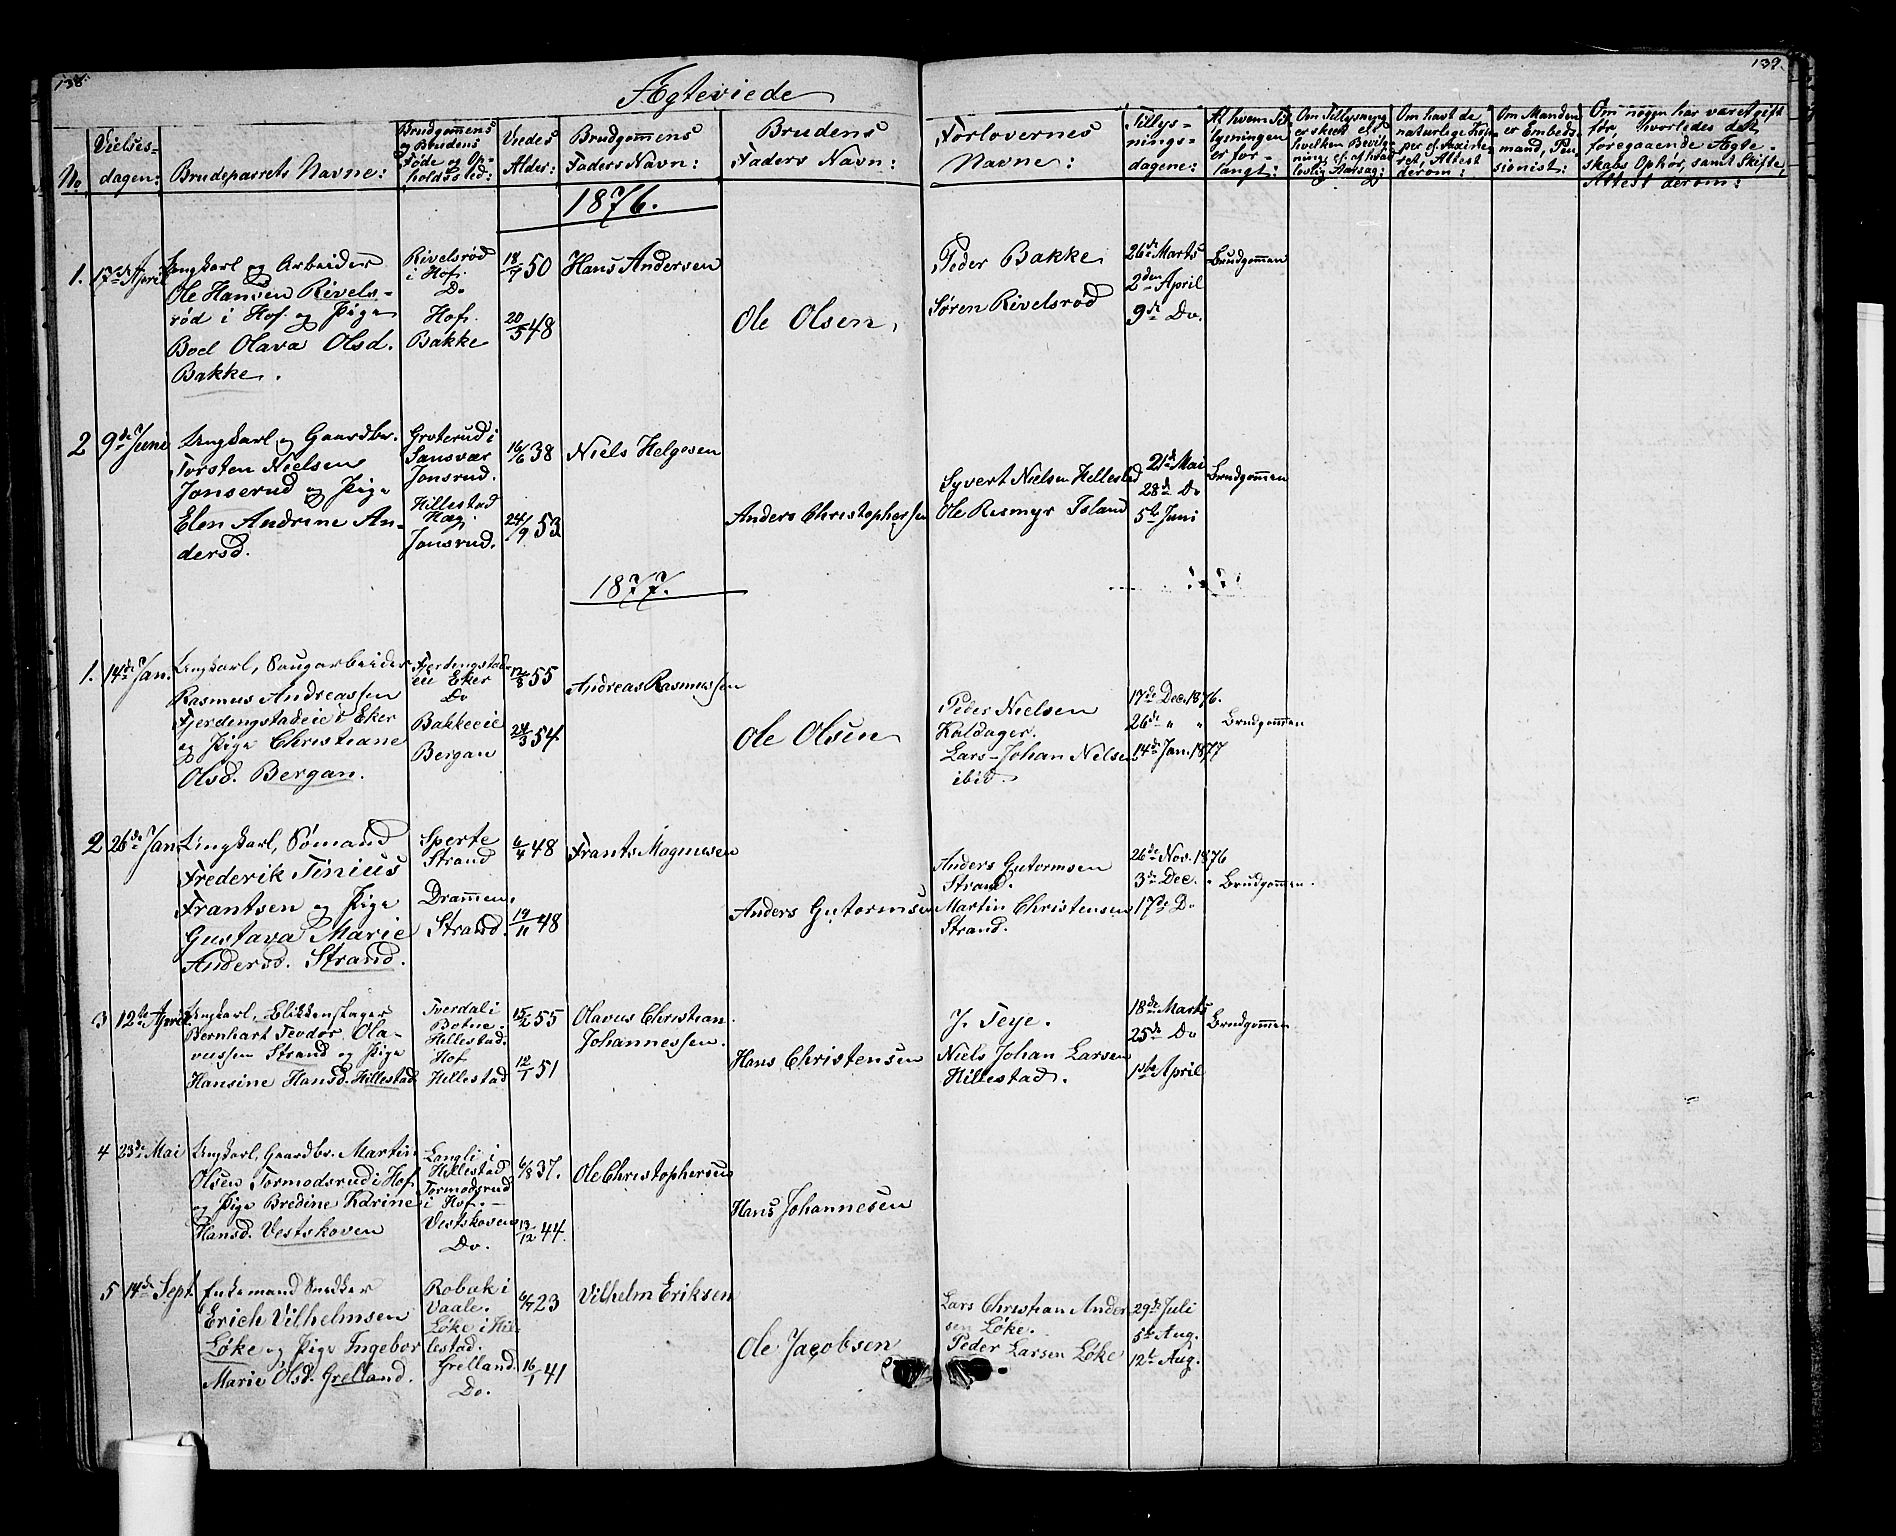 138.
139.
Ægteviede
No
Vielses-
dagen:
Brudeparrets Navne:
Brudgommens
og Brudens
Føde og Op-
holdssted:
Vndes
Alder:
Brudgommens
Faders Navn:
Brudens
Faders Navn:
Forlovernes
Navne:
Tillys-
nings-
dagene:
Af hvem Til-
lysningen
er for-
langt:
Om Manden
er Embeds-
mand, Pen-
sionist:
Om nogen har været gift
før, hvorledes det
foregaaende Ægte-
skabs Ophør, samt Skifte,
Attest derom:
1876.
1. 13de April
Ungkarl og Arbeider
Ole Hansen Rivels-
rød i Hof og Pige
Boel Olava Olsd.
Bakke.
Rivelsrød
i Hof.
Do
Hof.
Bakke
18/7 50
20/5 48
Hans Andersen
Ole Olsen,
Peder Bakke
Søren Rivelsrød
26de Marts
2den April
9de Do.
Brudgommen
2 9de Juni
Ungkarl og Gaardbr.
Torsten Nielsen
Jonserud og Pige
Elen Andrine An-
dersd.
Groterud i
Sansvær
Jonsrud.
Hillestad
Jonsrud.
16/6 38
24/9 53
Niels Helgesen
Anders Christophersen
Syvert Nielsen Hillestad
Ole Resmyr Island
21de Mai
28de Do
5te Juni
Brudgommen
1877.
1. 14de Jan.
Ungkarl, Saugarbeider
Rasmus Andreassen
Fjerdingstadeie i Eker
og Pige Christiane
Olsd. Bergan.
Fjerdingstad-
eie Eker
Do
Bakkeeie
Bergan
12/8 55
24/3 54
Andreas Rasmussen
Ole Olsen
Peder Nielsen
Kaldager.
Lars Johan Nielsen
ibid.
17de Dec. 1876.
26de " "
14de Jan. 1877
Brudgommen
2 26de Jan.
Ungkarl, Sømand
Frederik Tinius
Frantsen og Pige
Gustava Marie
Andersd. Strand.
Sperte
Strand
Drammen.
Strand.
6/4 48
19/11 48
Frants Magnusen
Anders Gutormsen
Anders Gutormsen
Strand.
Martin Christensen
Strand.
26de Nov. 1876
3de Dec. "
17de Do
Brudgommen.
3 12te April
Ungkarl, Blikkenslager
Bernhart Teodor Ola-
vussen Strand og Pige
Hansine Hansd. Hillestad
Tverdal i
Botne.
Hillestad.
Hof
Hillestad
15/2 55
12/1 51
Olavus Christian
Johannessen.
Hans Christensen
J. Teye.
Niels Johan Larsen
Hillestad.
18de Marts
25de Do
1ste April
Brudgommen
4 23de Mai
Ungkarl, Gaardbr. Martin
Olsen Tormodsrud i Hof
og Pige Bredine Karine
Hansd. Vestskoven
Langli i
Hillestad
Tormodsrud
i Hof.
Vestskoven
Do.
6/8 37.
13/12 44.
Ole Christophersen
Hans Johannesen
5 14de Sept.
Enkemand Snedker
Erich Vilhelmsen
Løke og Pige Ingebor
Marie Olsd. Grelland.
Robæk i
Vaale.
Løke i Hil-
lestad.
Grelland.
Do.
6/7 23
16/1 41
Vilhelm Eriksen
Ole Jacobsen
Lars Christian Ander-
sen Løke.
Peder Larsen Løke
29de Juli
5te Aug.
12te Aug.